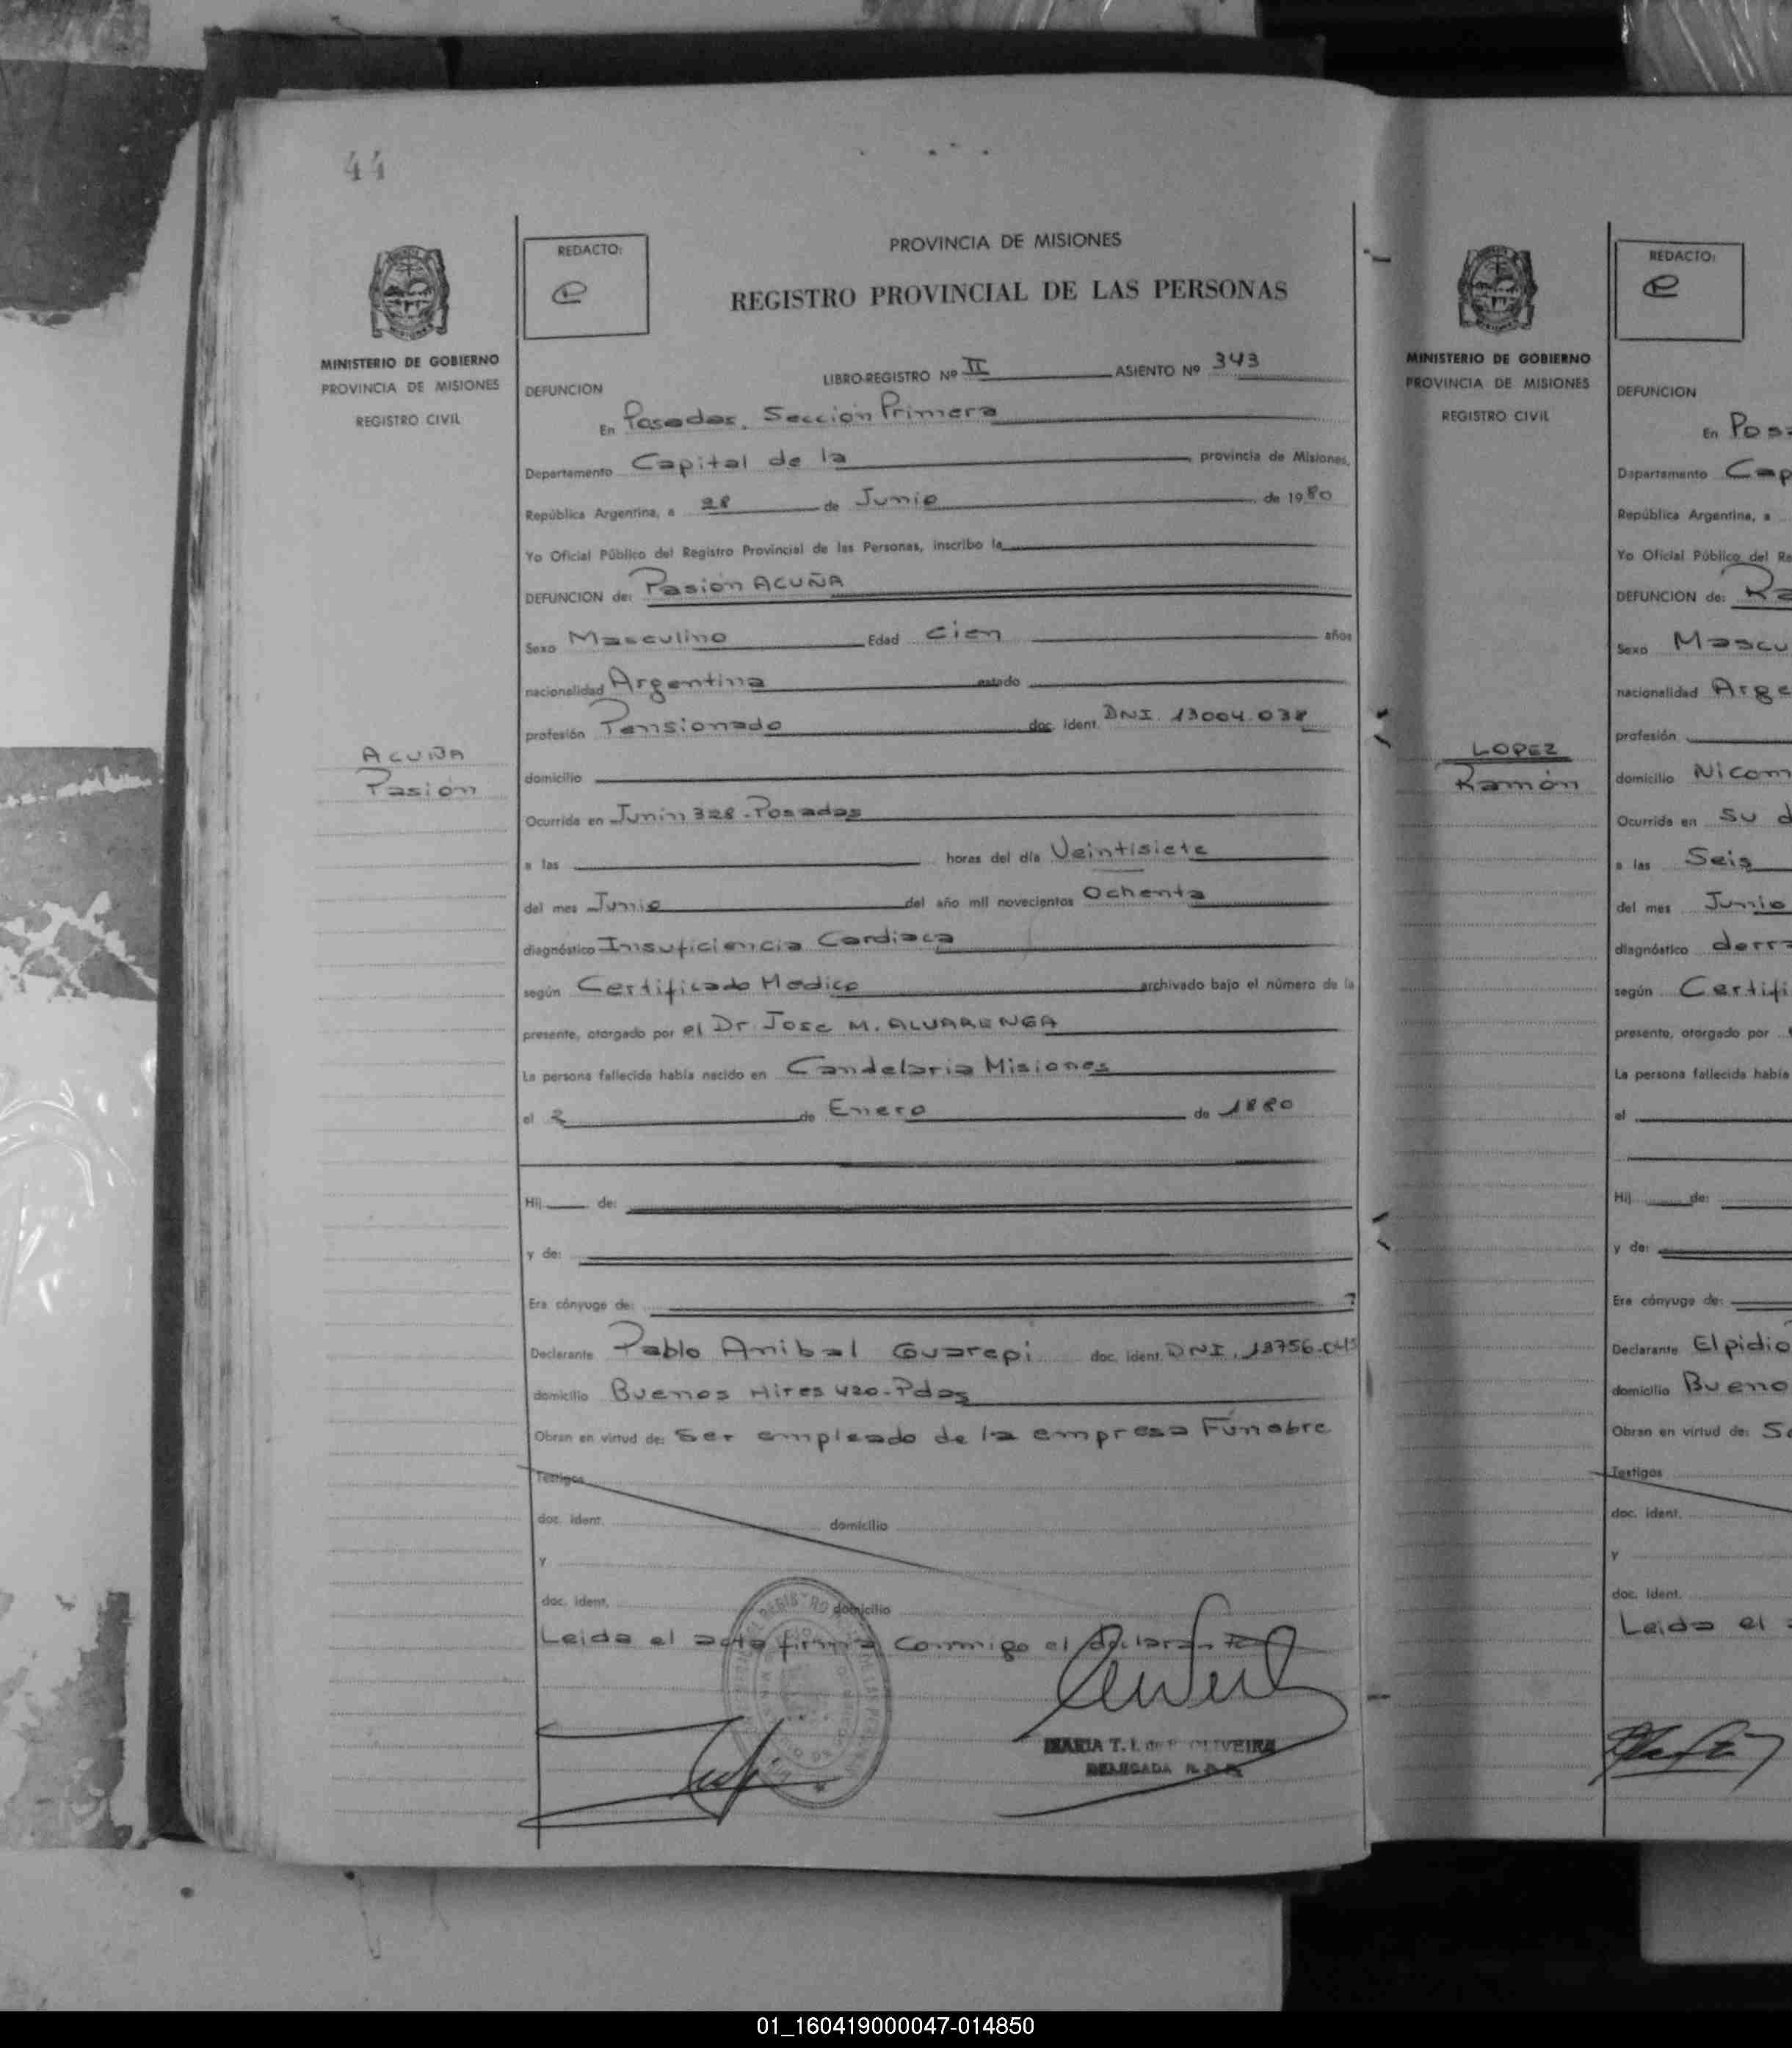 44
MINISTERIO DE GOBIERNO
PROVINCIA DE MISIONES
REGISTRO CIVIL
ACUÑA
Pasión
REDACTO:
PROVINCIA DE MISIONES
REGISTRO PROVINCIAL DE LAS PERSONAS
LIBRO-REGISTRO Nº II ASIENTO Nº 343
DEFUNCION
En Posadas, Sección Primera
Departamento Capital de la provincia de Misiones,
República Argentina, a 28 de Junio de 1980
Yo Oficial Público del Registro Provincial de las Personas, inscribo la
DEFUNCION de: Pasión ACUÑA
Sexo Masculino Edad Cien años
nacionalidad Argentina estado
profesión Pensionado doc. ident. DNI. 13004.038
domicilio
Ocurrida en Junin 328-Posadas
a las horas del día Veintisiete
del mes Junio del año mil novecientos Ochenta
diagnóstico Insuficiencia Cardiaca
según Certificado Medico archivado bajo el número de la
presente, otorgado por el Dr Jose M. ALVARENGA
La persona fallecida había nacido en Candelaria Misiones
el 2 de Enero de 1880
Hij de:
y de:
Era cónyuge de:
Declarante Pablo Anibal Guarepi doc. ident. DNI.
domicilio Buenos Aires 420-Pdas
Obran en virtud de: Ser empleado de la empresa Fúnebre
Testigos
doc. ident. domicilio
y
doc. ident. domicilio
Leida el acta firma Conmigo el declarante
MARIA T. I. de OLIVEIRA
DELEGADA
MINISTERIO DE GOBIERNO
PROVINCIA DE MISIONES
REGISTRO CIVIL
LOPEZ
Ramón
REDACTO:
DEFUNCION
En Posa
Departamento Cap
República Argentina, a
Yo Oficial Público del Re
DEFUNCION de: Ra
Sexo Mascu
nacionalidad Arge
profesión
domicilio Nicom
Ocurrida en su d
a las Seis
del mes Junio
diagnóstico derra
según Certifi
presente, otorgado por
La persona fallecida había
el
Hij de:
y de:
Era cónyuge de:
Declarante Elpidio
domicilio Bueno
Obran en virtud de: Se
Testigos
doc. ident.
y
doc. ident.
Leida el
01_160419000047-014850